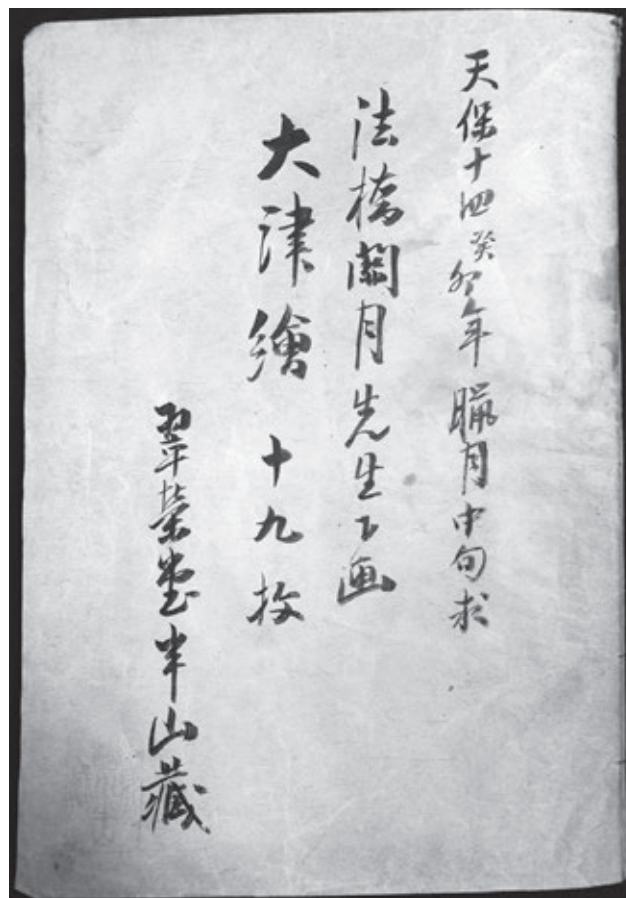 天保十四癸卯年臘月中旬求
法橋關月先生下画
大津繪十九枚
翠榮堂半山藏